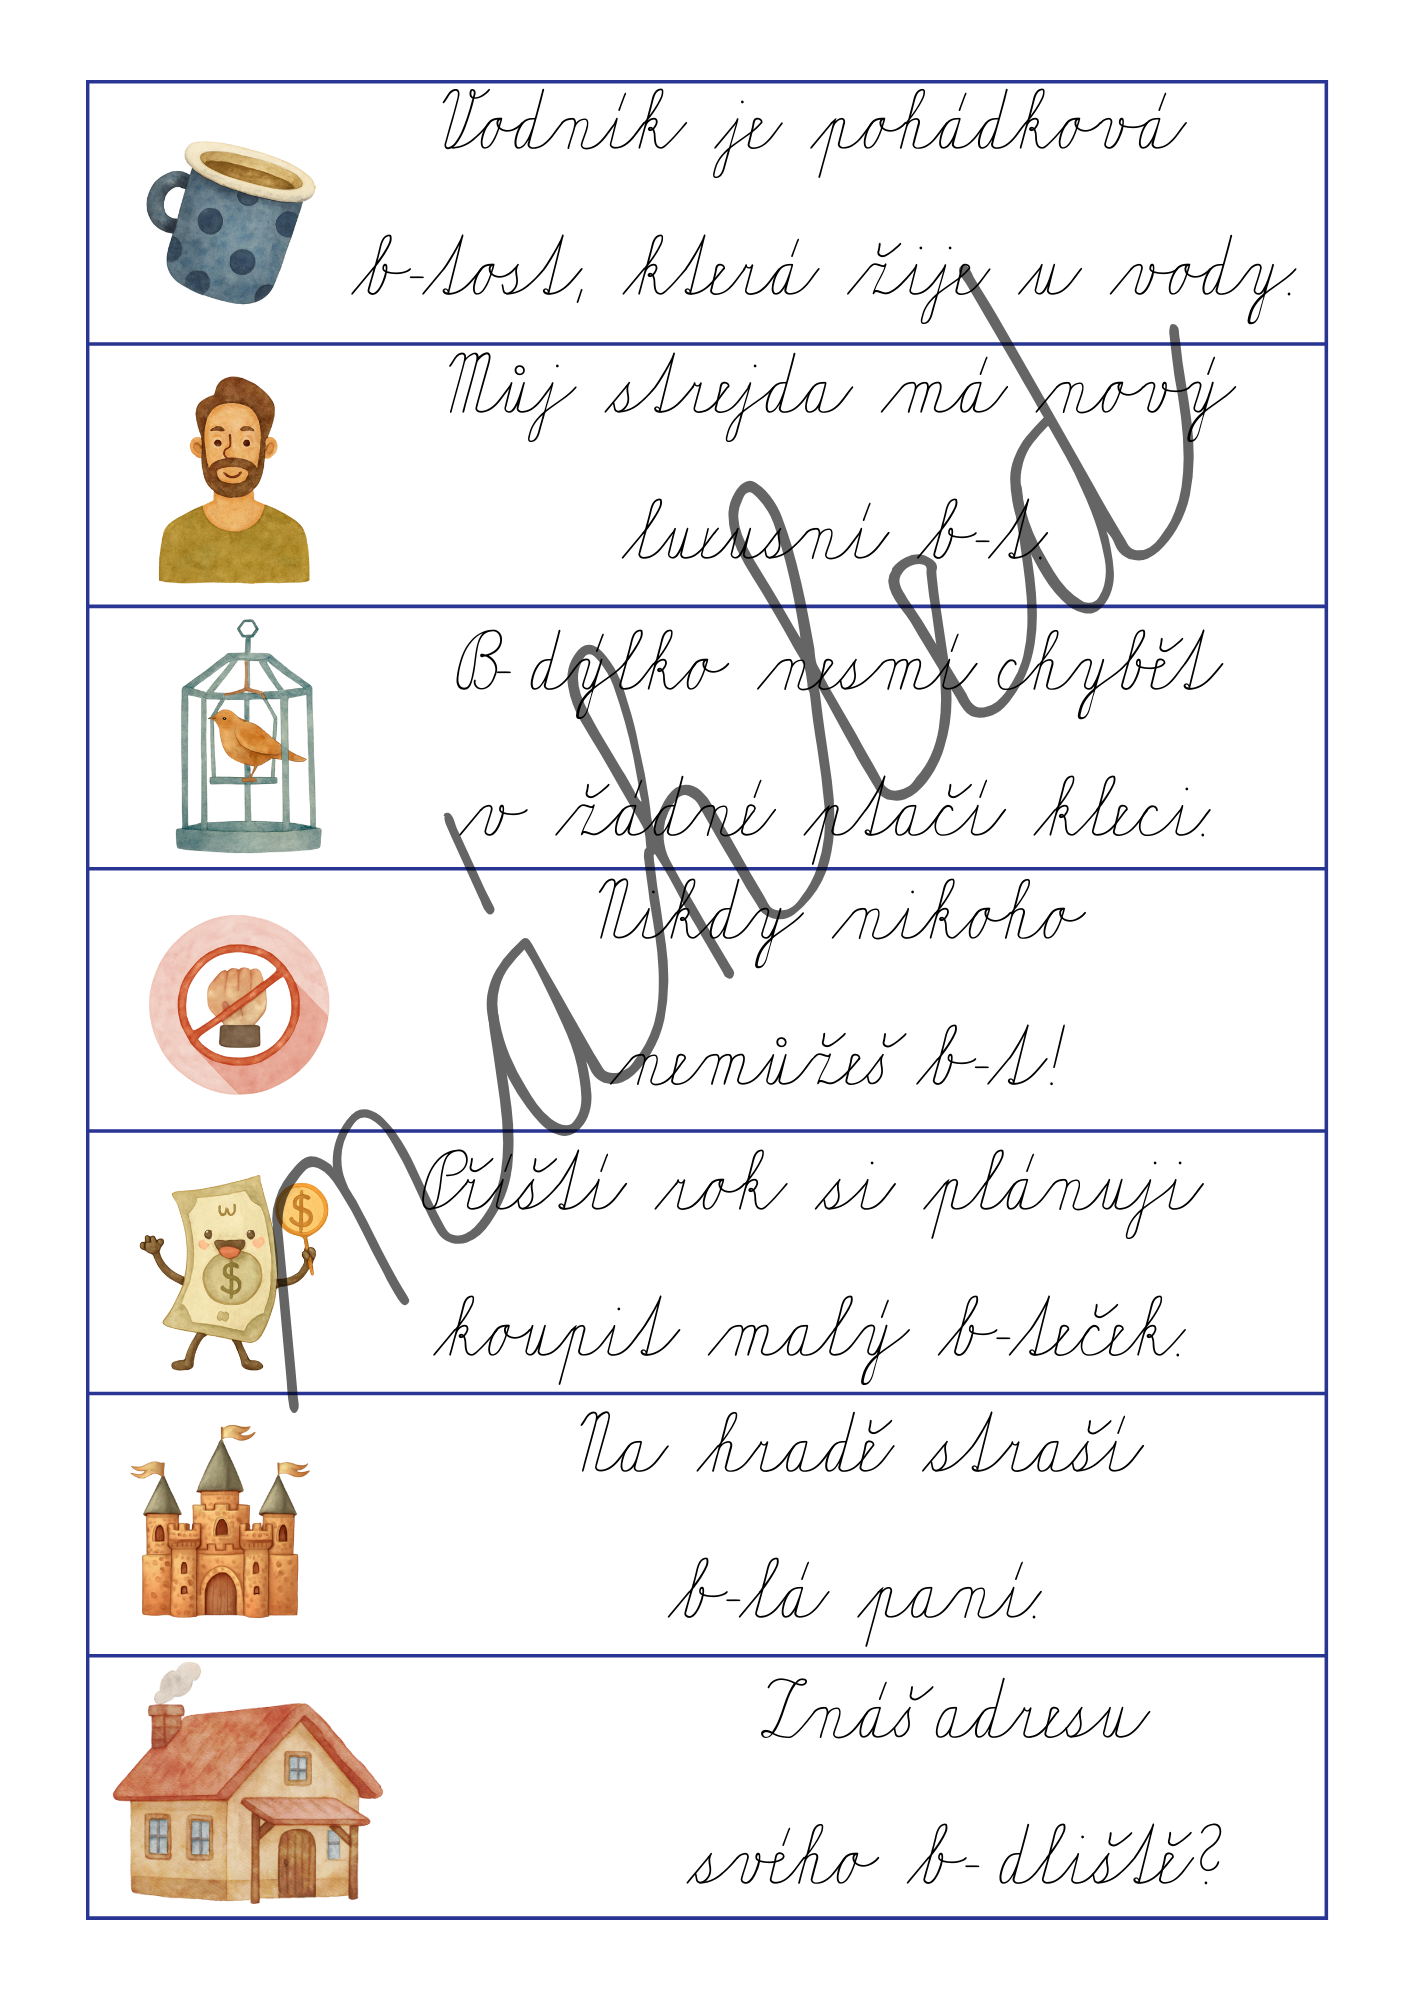 Vodník je pohádková
b-tost, která žije u vody.
Můj strejda má nový
luxusní b-t.
B-dýlko nesmí chybět
v žádné ptačí kleci.
Nikdy nikoho
nemůžeš b-t!
Příští rok si plánuji
koupit malý b-teček.
Na hradě straší
b-lá paní.
Znáš adresu
svého b-dliště?
náhled